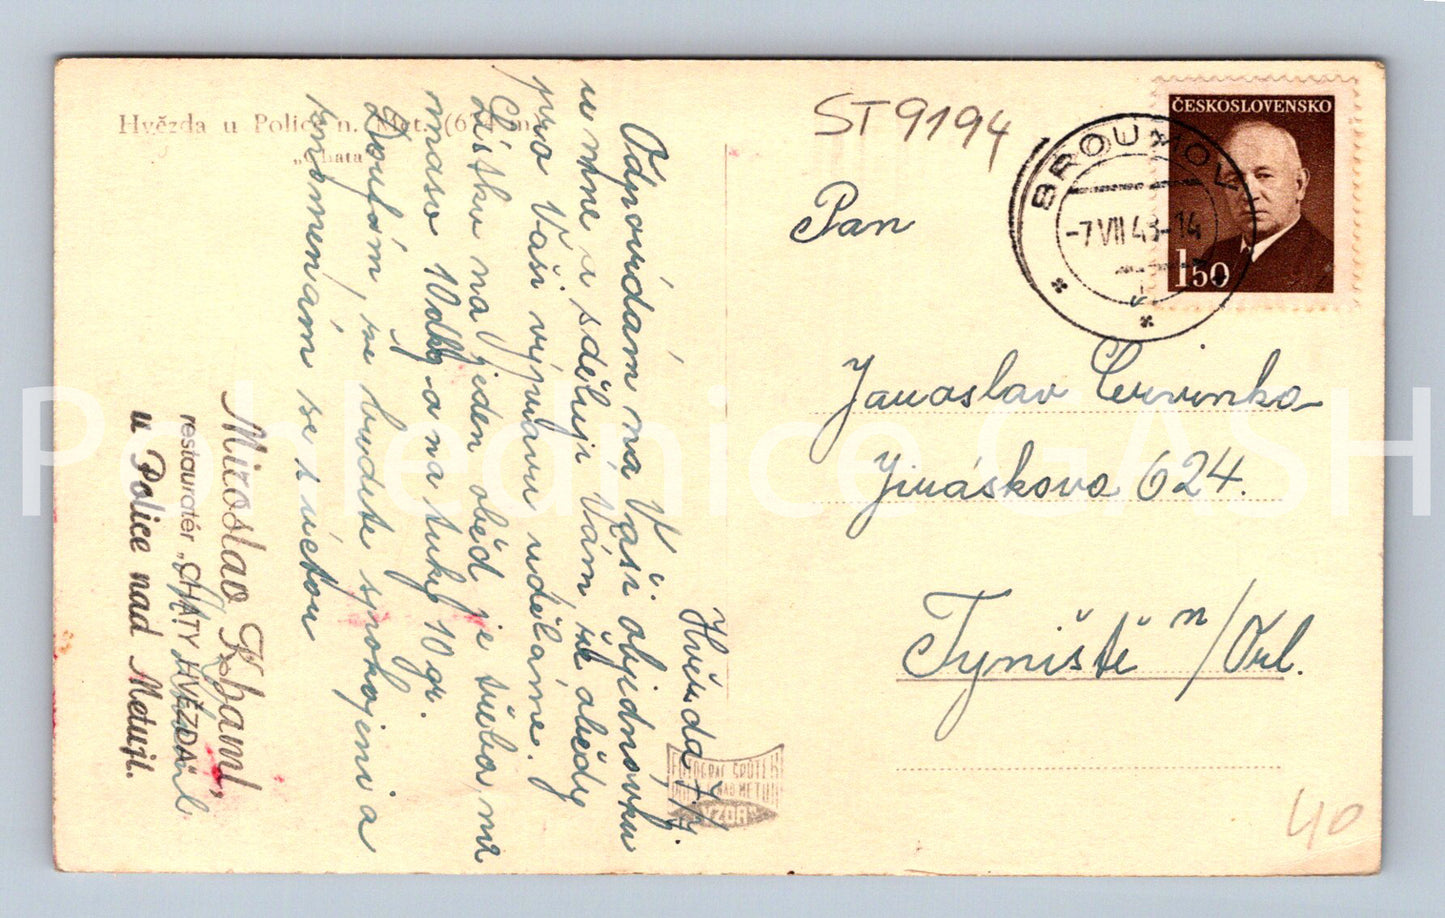 Hvězda u Police n. Met. (674 m)
„Chata
Hvězda 7/7.
Odpovídám na Vaši objednávku
u mne a sděluji Vám, že obědy
pro Vaši výpravu uděláme.
Lístku na jeden oběd je třeba, na
maso 10dkg a na tuky 10 gr.
Doufám, že budete spokojeni a
znamenám se s úctou
Miroslav Khaml,
restauratér „CHATY HVĚZDA“
u Police nad Metují.
ST9194
ČESKOSLOVENSKO
150
BROUMOV
-7 VII 48-14
Pan
Jaroslav Červinka
Jiráskova 624.
Týniště n/Orl.
40
Pohlednice GASH